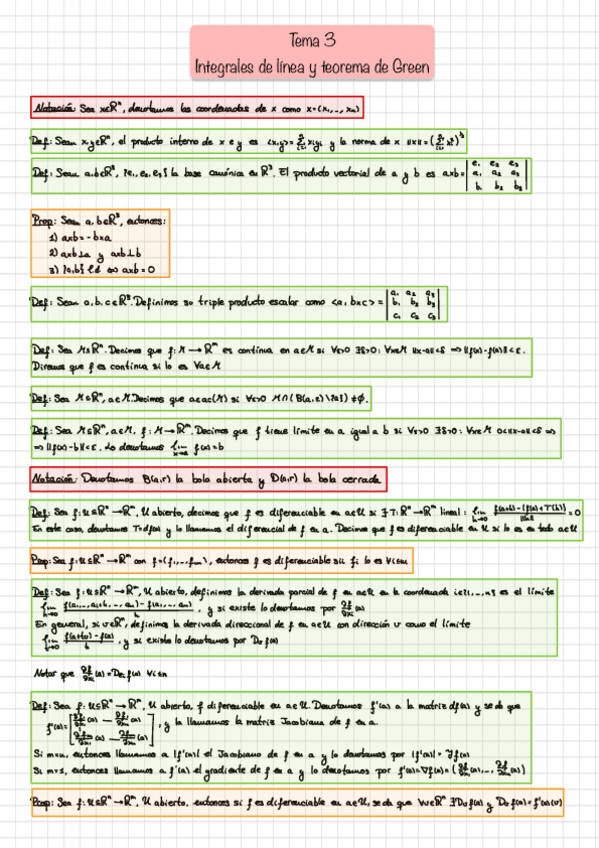 Tema 3
Integrales de línea y teorema de Green
Notación: Sea x∈ℝⁿ, denotamos las coordenadas de x como x=(x₁,..,xₙ)
Def: Sean x,y∈ℝⁿ, el producto interno de x e y es <x,y>=∑ᵢ₌₁ⁿ xᵢyᵢ y la norma de x ||x||=(∑ᵢ₌₁ⁿ xᵢ²)^½
Def: Sean a,b∈ℝ³, {e₁,e₂,e₃} la base canónica en ℝ³. El producto vectorial de a y b es axb= | e₁ e₂ e₃ |
| a₁ a₂ a₃ |
| b₁ b₂ b₃ |
Prop: Sean a,b∈ℝ³, entonces:
1) axb=-bxa
2) axb⊥a y axb⊥b
3) {a,b} l.d ⇔ axb=0
Def: Sean a,b,c∈ℝ³. Definimos su triple producto escalar como <a,bxc>= | a₁ a₂ a₃ |
| b₁ b₂ b₃ |
| c₁ c₂ c₃ |
Def: Sea M⊆ℝⁿ. Decimos que f:M→ℝᵐ es continua en a∈M si ∀ε>0 ∃δ>0: ∀x∈M ||x-a||<δ ⇒ ||f(x)-f(a)||<ε.
Diremos que f es continua si lo es ∀a∈M
Def: Sea M⊆ℝⁿ, a∈M. Decimos que a∈ac(M) si ∀ε>0 M∩(B(a,ε)\{a})≠∅.
Def: Sea M⊆ℝⁿ, a∈M, f:M→ℝᵐ. Decimos que f tiene límite en a igual a b si ∀ε>0 ∃δ>0: ∀x∈M 0<||x-a||<δ ⇒
⇒ ||f(x)-b||<ε. Lo denotamos lim x→a f(x)=b
Notación: Denotamos B(a,r) la bola abierta y D(a,r) la bola cerrada
Def: Sea f:U⊆ℝⁿ→ℝᵐ, U abierto, decimos que f es diferenciable en a∈U si ∃T:ℝⁿ→ℝᵐ lineal: lim h→0 (f(a+h)-(f(a)+T(h)))/||h|| =0
En este caso, denotamos T=df(a) y lo llamamos el diferencial de f en a. Decimos que f es diferenciable en U si lo es en todo a∈U
Prop: Sea f:U⊆ℝⁿ→ℝᵐ con f=(f₁,..,fₘ), entonces f es diferenciable sii fᵢ lo es ∀i≤m
Def: Sea f:U⊆ℝⁿ→ℝᵐ, U abierto, definimos la derivada parcial de f en a∈U en la coordenada i∈{1,..,n} es el límite
lim h→0 (f(a₁,..,aᵢ+h,..,aₙ)-f(a₁,..,aₙ))/h, y si existe lo denotamos por ∂f/∂xᵢ(a)
En general, si v∈ℝⁿ, definimos la derivada direccional de f en a∈U con dirección v como el límite
lim h→0 (f(a+hv)-f(a))/h, y si existe lo denotamos por Dᵥf(a)
Notar que ∂f/∂xᵢ(a)=D_eᵢ f(a) ∀i≤n
Def: Sea f:U⊆ℝⁿ→ℝᵐ, U abierto, f diferenciable en a∈U. Denotamos f'(a) a la matriz df(a) y se da que
f'(a)= [ ∂f₁/∂x₁(a) … ∂f₁/∂xₙ(a) ; ∂fₘ/∂x₁(a) … ∂fₘ/∂xₙ(a) ], y la llamamos la matriz Jacobiana de f en a.
Si m=n, entonces llamamos a |f'(a)| el Jacobiano de f en a y lo denotamos por |f'(a)|=Jf(a)
Si m=1, entonces llamamos a f'(a) el gradiente de f en a y lo denotamos por f'(a)=∇f(a)=(∂f/∂x₁(a),..,∂f/∂xₙ(a))
Prop: Sea f:U⊆ℝⁿ→ℝᵐ, U abierto. entonces si f es diferenciable en a∈U, se da que ∀v∈ℝⁿ ∃Dᵥf(a) y Dᵥf(a)=f'(a)(v)